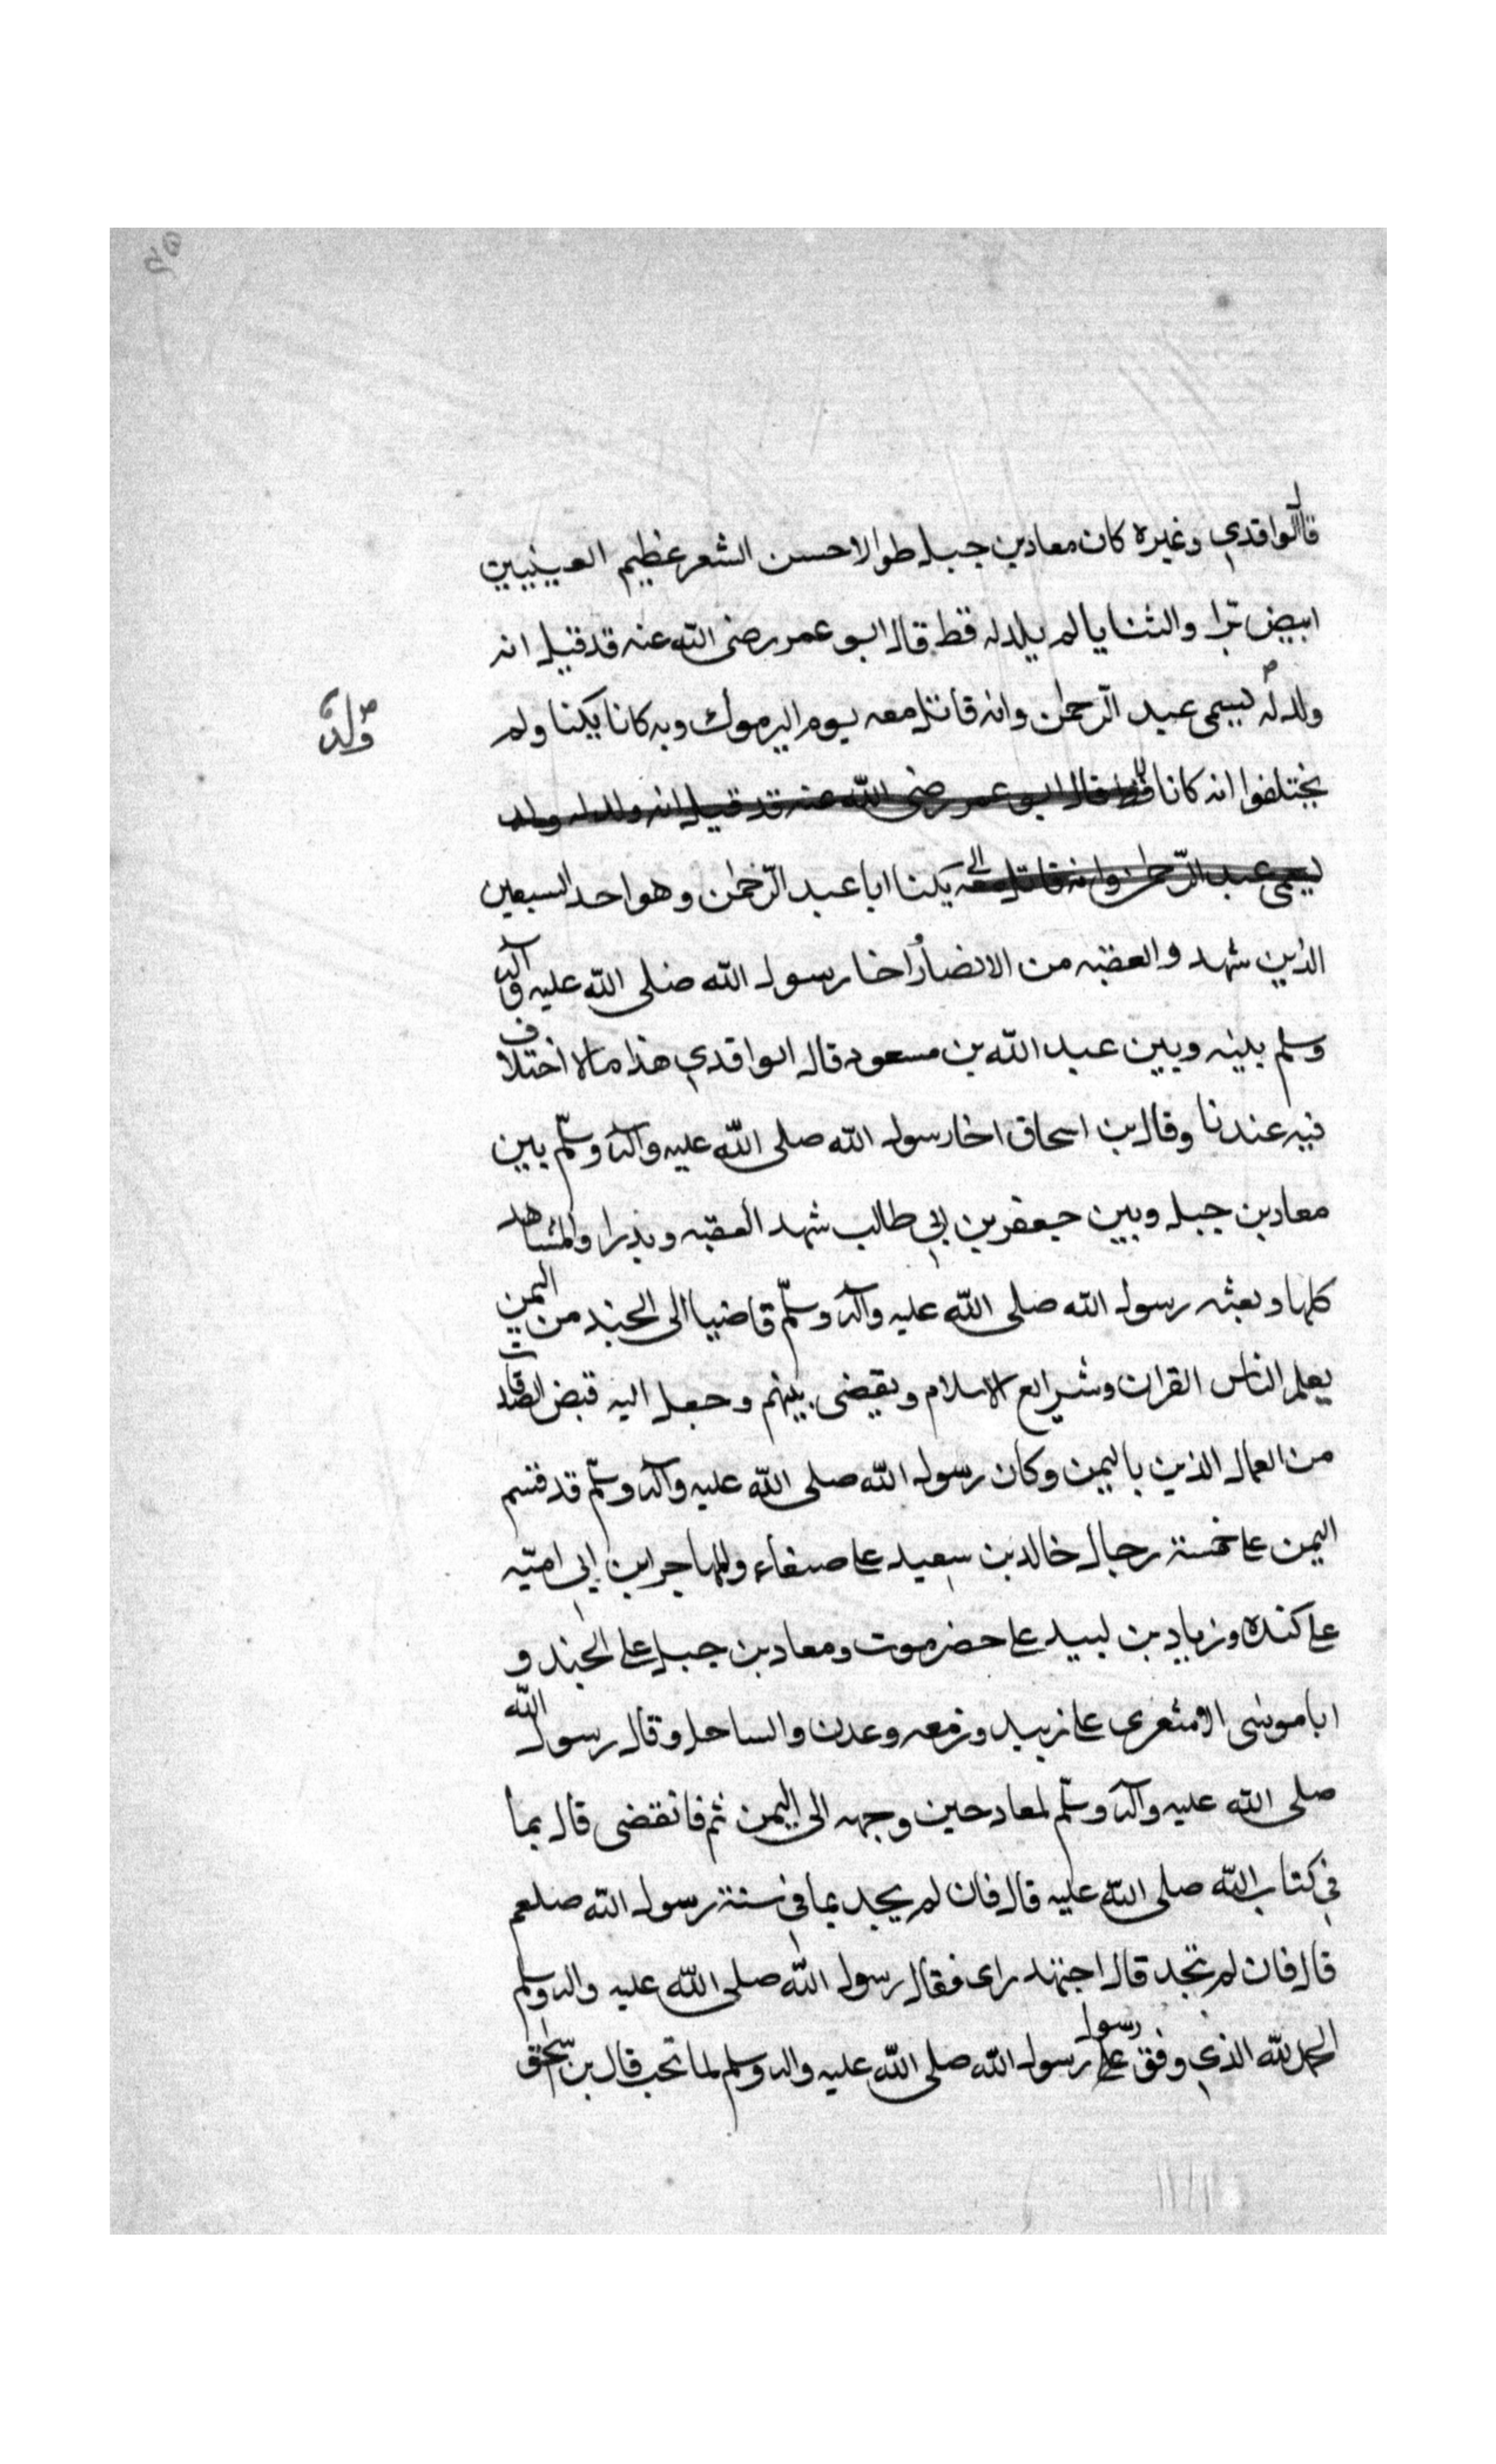 قال الواقدي وغيره كان معاد بن جبل طوالا حسن الشعر عظيم العينيين
ابيض برا والثنايا لم يلد له قط قال ابو عمر رضى الله عنه قد قيل انه
ولد له ليسمى عبد الرحمن وانه قاتل معه يوم اليرموك وبه كانا يكنا ولم
ولد
يختلفوا انه كانا قط قال ابو عمر رضى الله عنه قد قيل انه ولد له ولد
ليسمى عبد الرحمن وانه قاتل معه يكنا ابا عبد الرحمن وهو احد السبعين
الذين شهد والعقبه من الانصار اخا رسول الله صلى الله عليه واله
وسلم بينه وبين عبد الله بن مسعود قال الواقدي هذا مالا اختلاف
فيه عندنا وقال بن اسحاق اخا رسول الله صلى الله عليه واله وسلم بين
معاد بن جبل وبين جعفر بن ابي طالب شهد العقبه وبدرا والمشاهد
كلها وبعثه رسول الله صلى الله عليه واله وسلم قاضيا الى الجند من اليمن
يعلم الناس القران وشرايع الاسلام ويقضى بينهم وجعل اليه قبض الصدقات
من العمال الذين باليمن وكان رسول الله صلى الله عليه واله وسلم قد قسم
اليمن على خمسة رجال خالد بن سعيد على صنعاء والمهاجر ابن ابي اميه
على كنده وزياد بن لبيد على حضرموت ومعاد بن جبل على الجند و
ابا موسى الاشعرى على زبيد وزمعه وعدن والساحل وقال رسول الله
صلى الله عليه واله وسلم لمعاد حين وجهه الى اليمن ثم فاتقضى قال بما
في كتاب الله صلى الله عليه قال فان لم يجد بما في سنة رسول الله صلعم
قال فان لم تجد قال اجتهد راى فقال رسول الله صلى الله عليه واله وسلم
الحمد لله الذي وفق على رسول رسول الله صلى الله عليه واله وسلم لما تحب قال بن اسحق